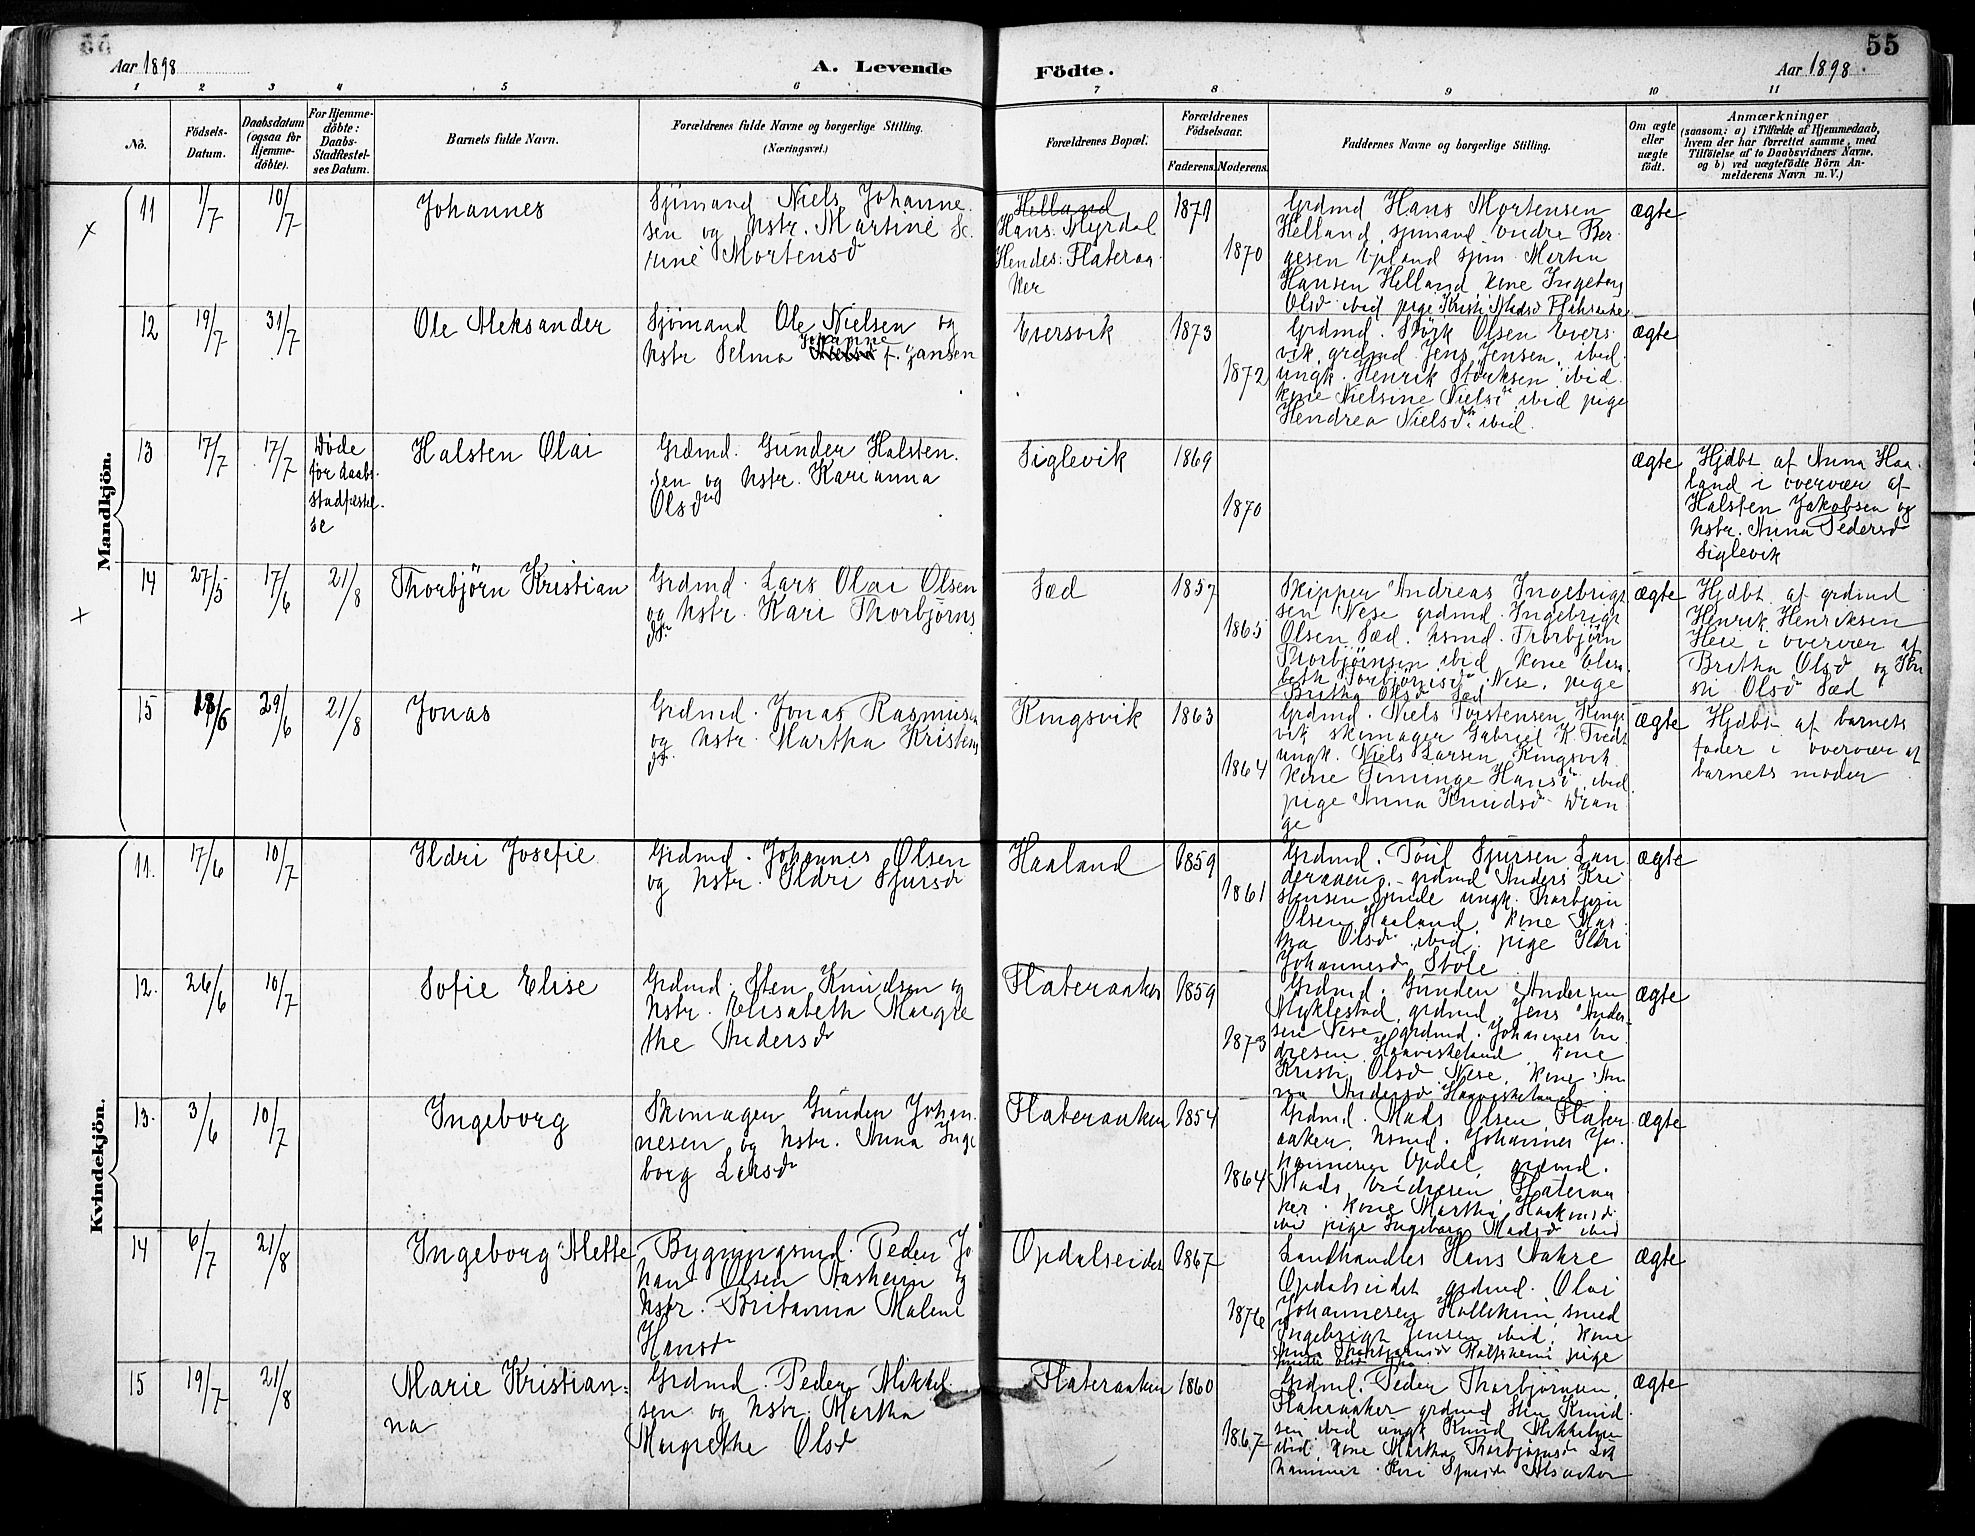 Aar 1898
A. Levende Födte.
Aar 1898.
55
1 2 3 4 5 6 7 8 9 10 11
No.
Födsels-Datum.
Daabsdatum (ogsaa for Hjemmedöbte).
For Hjemmedöbte: Daabs-Stadfæstelses Datum.
Barnets fulde Navn.
Forældrenes fulde Navne og borgerlige Stilling.
(Næringsvei.)
Forældrenes Bopæl.
Forældrenes Födselsaar.
Faderens. Moderens.
Faddernes Navne og borgerlige Stilling.
Om ægte eller uægte födt.
Anmærkninger
(saasom: a) i Tilfælde af Hjemmedaab, hvem der har forrettet samme, med Tilföielse af to Daabsvidners Navne, og b) ved uægtefödte Börn Anmelderens Navn m. V.)
Mandkjön.
11 1/7 10/7
Johannes
Sjömand Niels Johanne
sen og hstr. Martine
Mortensd
Helland
Hans: Myrdal
Hendes: Flateraa
ker
1871
1870
Grdmd Hans Mortensen
Helland, sjömand Endre Ber
gesen Opland sjöm. Morten
Hansen Helland kone Ingeborg
Olsd ibid pige Kristi Madsd
ægte
12 19/7 31/7
Ole Aleksander
Sjömand Ole Nielsen og
hstr Selma Johanne f. Jansen
Eversvik
1873
1872
Grdmd. Störk Olsen Evers
vik, grdmd Jens Jensen, ibid.
ungk. Henrik Störksen ibid.
kone Nielsine Nielsd ibid pige
Hendrea Nielsd. ibid.
ægte
13 17/7 17/7
Döde
för daabs
stadfæstel
se
Halsten Olai
Grdmd. Gunder Halsten
sen og hstr. Karianna
Olsd
Siglevik
1869
1870
ægte
Hjdbt af Anna Haa
land i overvær af
Halsten Jakobsen og
hstr. Anna Pedersd
Siglevik
14 27/5 17/6 21/8
Thorbjörn Kristian
Grdmd. Lars Olai Olsen
og hstr. Kari Thorbjörns
dr.
Sæd
1857
1865
Skipper Andreas Ingebrigt
sen Nese grdmd. Ingebrigt
Olsen Sæd. hsmd. Thorbjörn
Thorbjörnsen ibid kone Elisa
beth Torbjörnsd Nese, pige
Britha Olsd Sæd
ægte
Hjdbt af grdmd
Henrik Henriksen
Heie i overvær af
Britha Olsd og Kri
sti Olsd Sæd
15 18/6 29/6 21/8
Jonas
Grdmd. Jonas Rasmusen
og hstr. Martha Kristens
dr.
Kingsvik
1863
1864
Grdmd. Niels Torstensen Kings
vik skomager Gabriel K Tvedt
ungk. Niels Larsen Kingsvik
kone Hansd ibid.
pige Anna Knudsd Dran
ge
ægte
Hjdbt af barnets
fader i overvær af
barnets moder
Kvindekjön.
11. 17/6 10/7
Ildri Josefie
Grdmd. Johannes Olsen
og hstr. Ildri Sjursd
Haaland
1859
1861
Grdmd. Poul Sjursen Lan
deraaen, grdmd Anders Kri
stensen ungk. Thorbjörn
Olsen Haaland, kone Mar
tha Olsd ibid. pige Ildri
Johannesd Stöle
ægte
12. 26/6 10/7
Sofie Elise
Grdmd. Sten Knudsen og
hstr. Elisabeth Margre
the Andersd
Flateraaker
1859
1873
Grdmd. Gunder Andersen
Myklestad, grdmd. Jens Ander
sen Nese grdmd. Johannes En
dresen Haavikeland kone
Kristi Olsd Nese. kone An
na Andersd Haavikeland
ægte
13. 3/6 10/7
Ingeborg
Skomager Gunder Johan
nesen og hstr. Anna Inge
borg Larsd
Flateraaker
1854
1864
Grdmd. Mads Olsen Flater
aaker, hsmd. Johannes Jo
hannesen Opdal, grdmd.
Mads Endresen Flateraa
ker. kone Martha Haakonsd
ibid pige Ingeborg Madsd ibid
ægte
14 6/7 21/8
Ingeborg Mette
Bygningsmd. Peder Jo
han Olsen Aasheim og
hstr. Britannia Malene
Hansd
Opdalseidet
1867
1876
Landhandler Hans Aakre
Opdalseidet grdmd. Olai
Johannesen smed
Ingebrigt Jensen ibid. kone
pige
ægte
15 19/7 21/8
Marie Kristian
na
Grdmd. Peder Mikkel
sen og hstr. Martha
Margrethe Olsd
Flateraaker
1860
1867
Grdmd. Peder Thorbjörnsen
Flateraaker grdmd Sten Knud
sen ibid ungk Knud Mikkelsen
ibid kone Martha Thorbjörnsd
hammer.
ægte